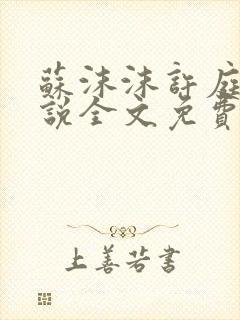 蘇沫沫許庭
說全文免費
上善若書